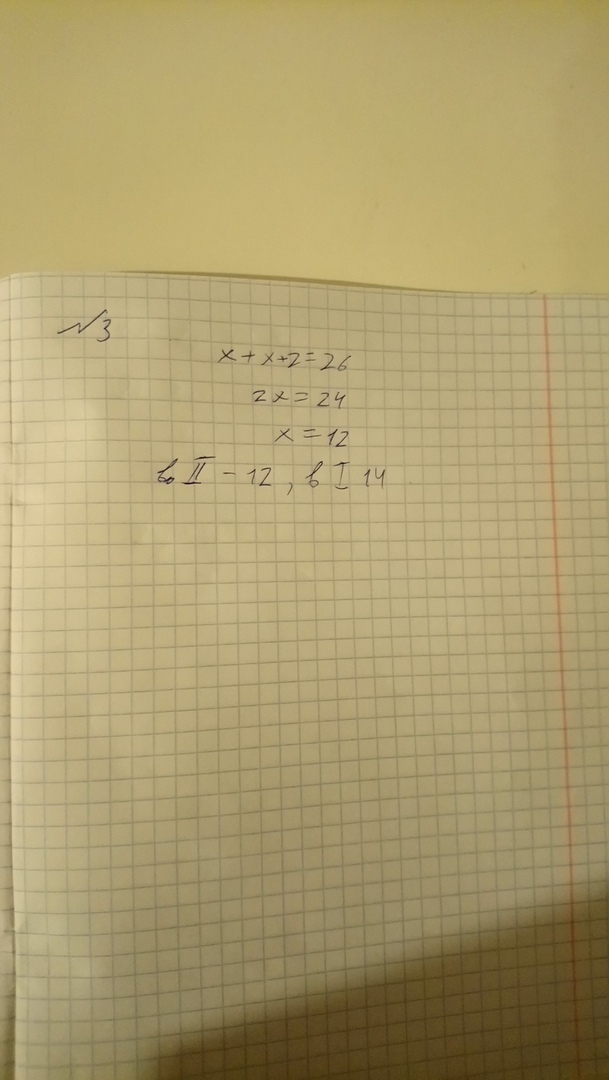 №3
x+x+2=26
2x=24
x=12
во II – 12, в I 14